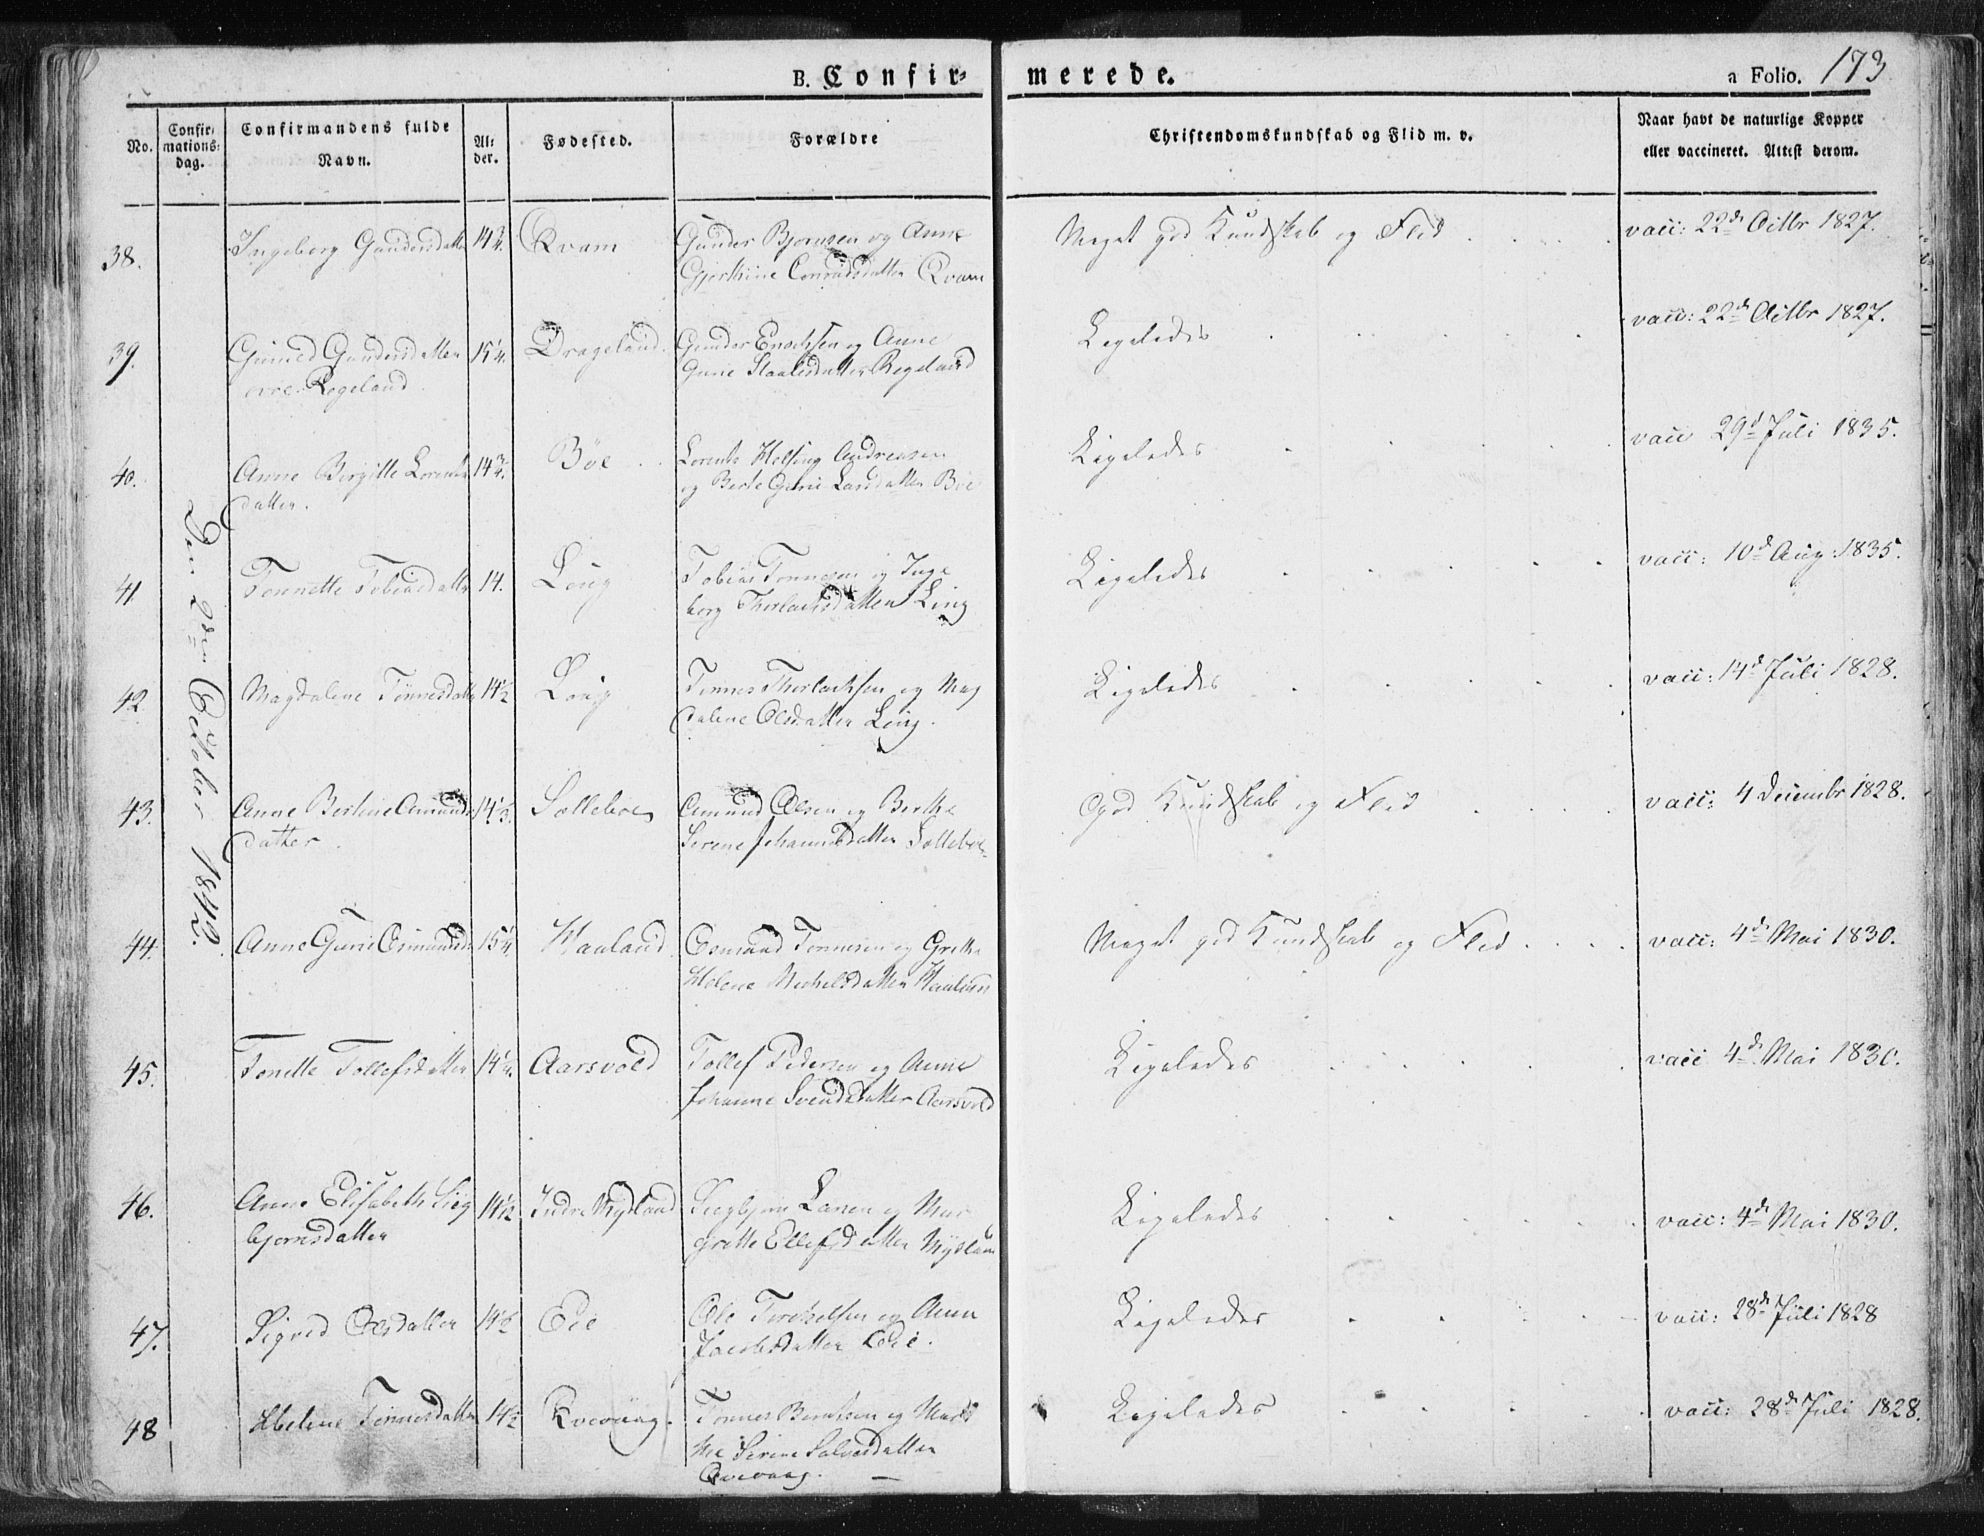 B. Confir-
merede.
a Folio. 173
No.
Confir-
mations-
dag.
Confirmandens fulde
Navn.
Al-
der.
Fødested.
Forældre
Christendomskundskab og Flid m. v.
Naar havt de naturlige Kopper
eller vaccineret. Attest derom.
Den 2den October 1842.
38.
Ingeborg Gundersdatter
14 3/4.
Qvam
Gunder Bjornsen og Anne
Gjerthine Conradsdatter Qvam
Meget god Kundskab og Flid
vacc: 22de Octbr 1827.
39.
Gunild Gundersdatter
Regeland
15 1/4.
Drageland.
Gunder Enochsen og Anne
Gurie Staalesdatter Regeland
Ligeledes
vacc: 22de Octbr 1827.
40.
Anne Birgitte Lorents
datter.
14 3/4.
Böe
Lorents Helsing Andreasen
og Berte Gurie Larsdatter Böe
Ligeledes
vacc 29d Juli 1835.
41
Tonnette Tobiasdatter
14.
Ling
Tobias Tonnesen og Inge
borg Thorlachsdatter Ling
Ligeledes
vacc: 10d Aug: 1835.
42.
Magdalene Tönnesdatter
14 1/2
Ling
Tonnes Thorlachsen og Mag
dalene Olsdatter Ling.
Ligeledes
vacc: 14d Juli 1828.
43.
Anne Bertine Amunds
datter.
14 1/3.
Solleböe
Amund Olsen og Berthe
Serene Johannesdatter Solleböe
God Kundskab og Flid
vacc: 4 Decembr 1828.
44.
Anne Gurie Osmundsd:
15 1/4.
Haaland
Osmund Tonnesen og Grethe
Helene Michelsdatter Haaland
Meget god Kundskab og Flid
vacc: 4de Mai 1830.
45.
Tonette Tollefsdatter
14 1/4.
Aarsvold
Tollef Pedersen og Anne
Johanne Svendsdatter Aarsvold
Ligeledes
vacc 4de Mai 1830.
46.
Anne Elisabeth Sieg
bjornsdatter
14 1/2
Indre Mydland
Siegbjorn Larsen og Mar
grethe Ellefsdatter Mydland
Ligeledes
vacc: 4de Mai 1830.
47.
Sigrid Olsdatter
14 1/2
Eie
Ole Terchelsen og Anne
Jacobsdatter Eie.
Ligeledes
vacc: 28de Juli 1828
48
Helene Tönnesdatter
14 1/2
Qvevaag.
Tonnes Berntsen og
Serine Salvesdatter
Qvevaag.
Ligeledes
vacc: 28de Juli 1828.